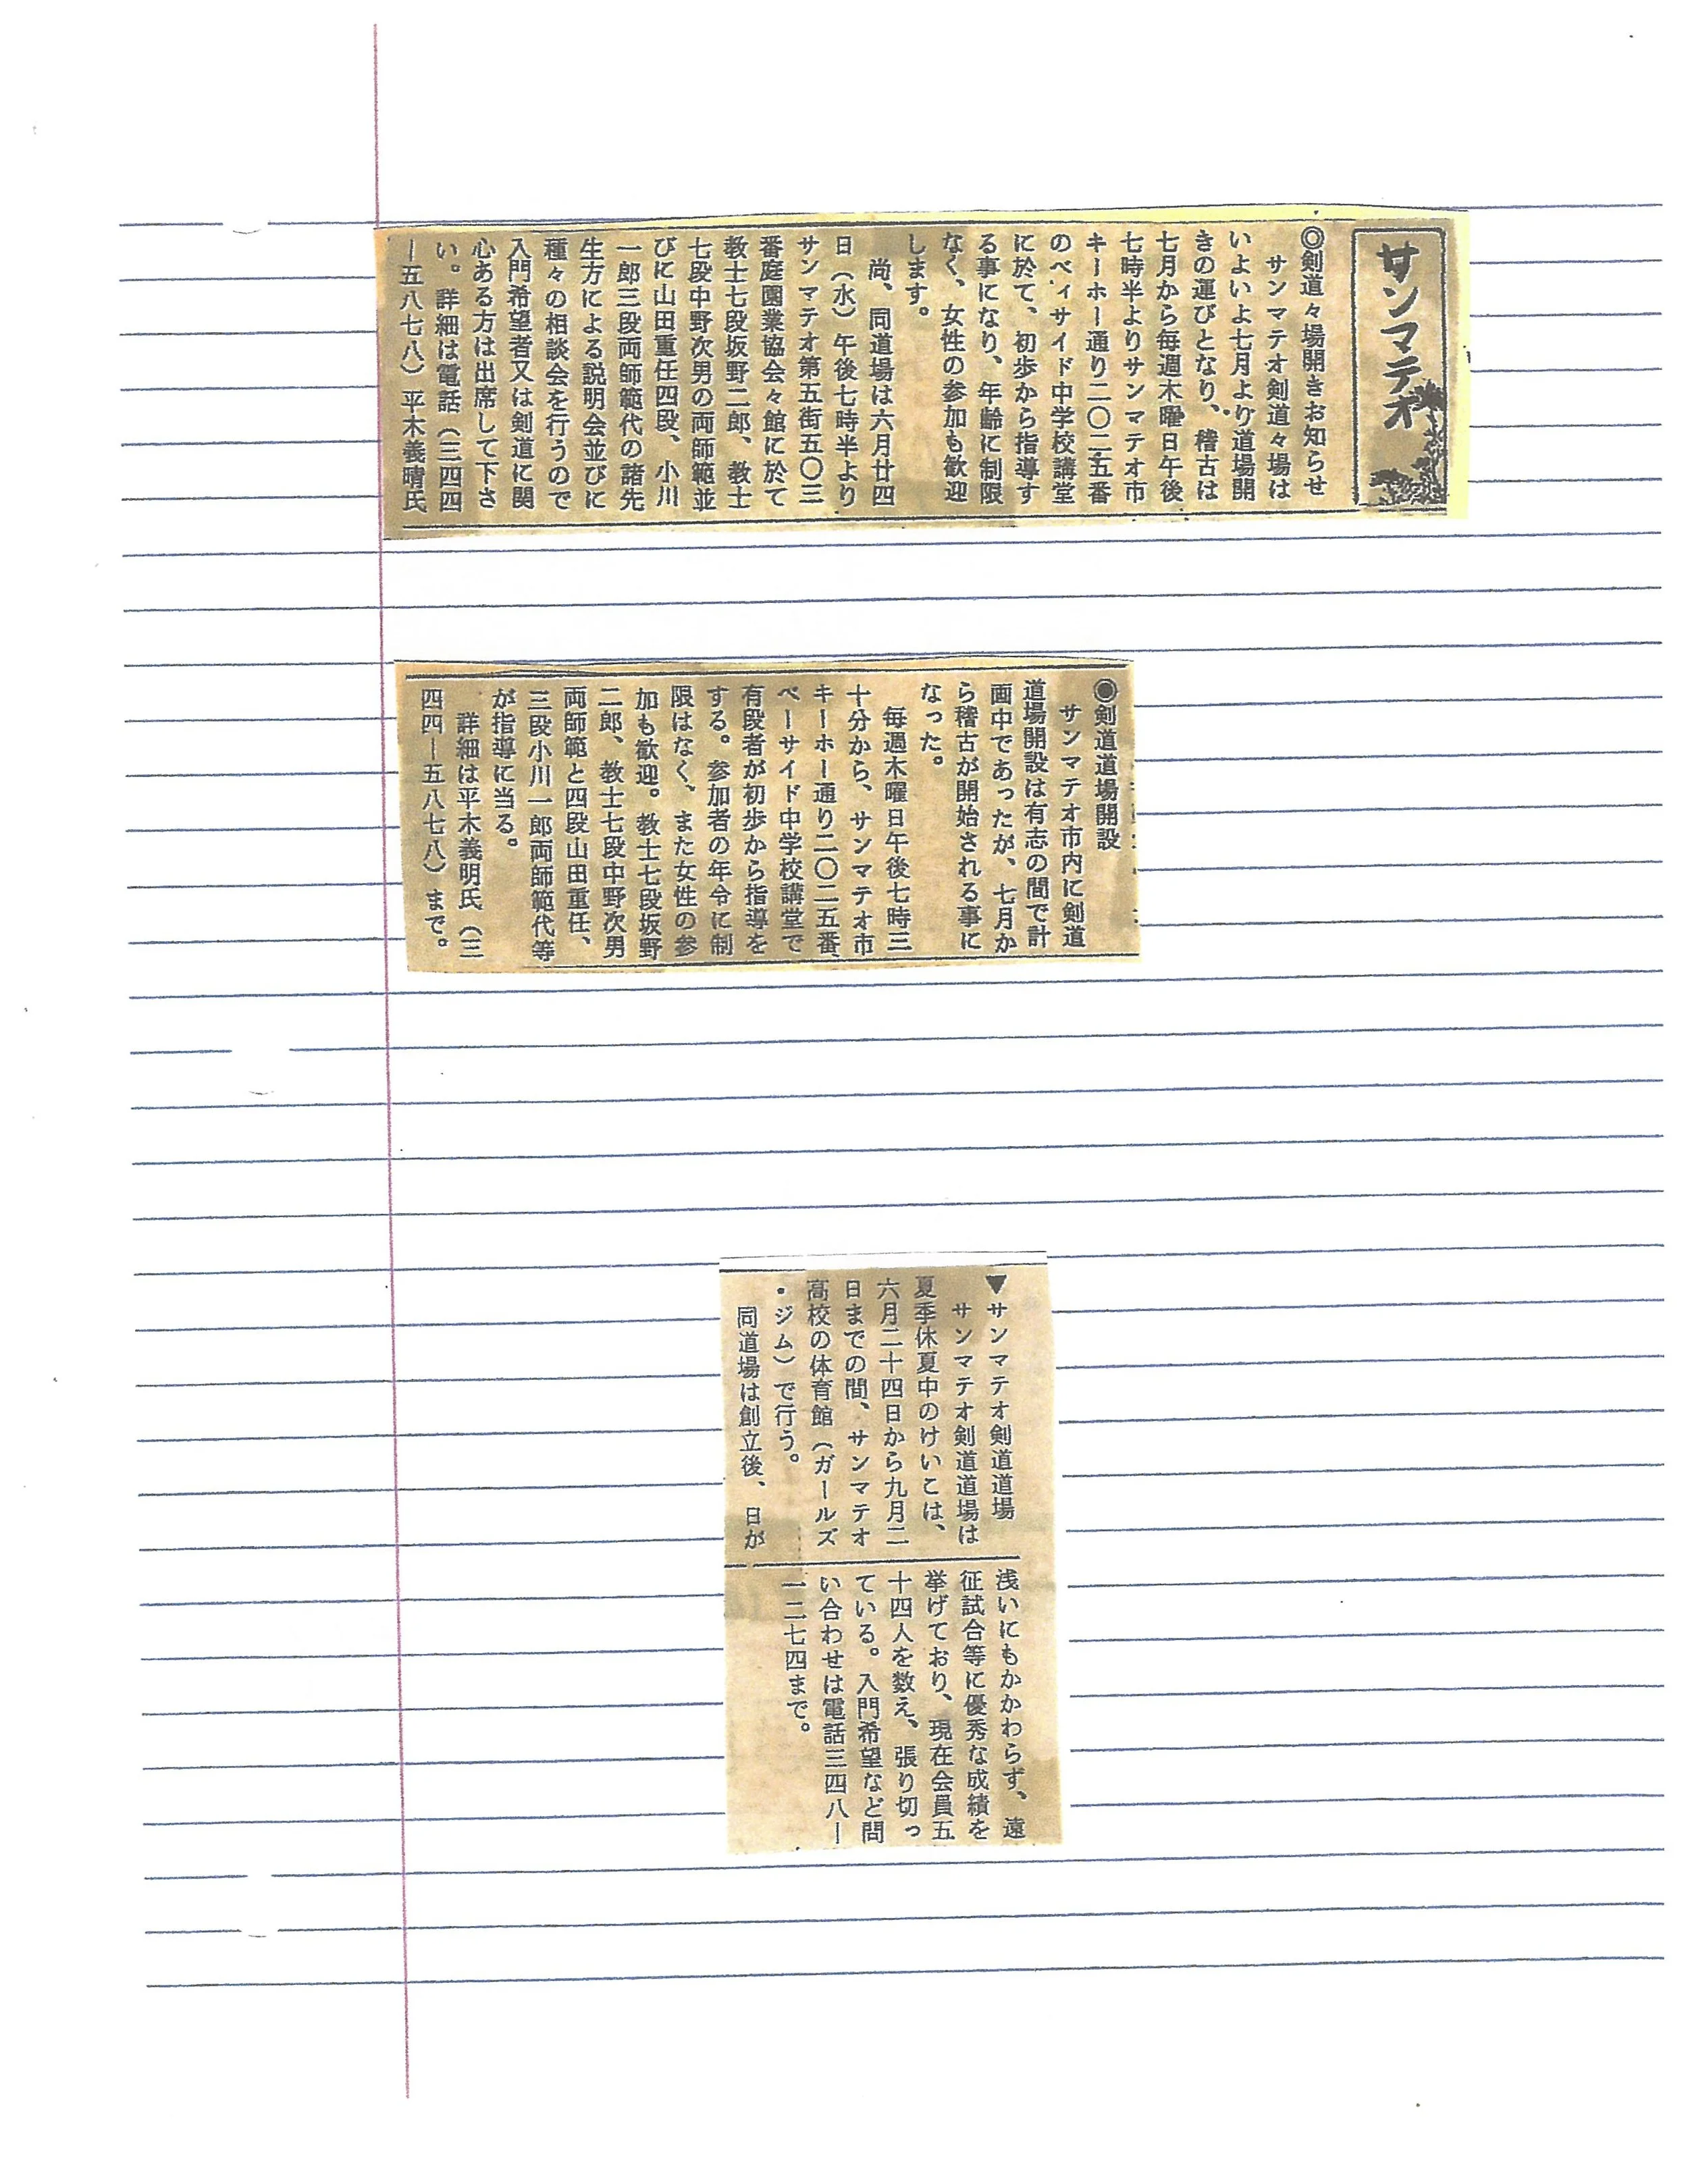 サンマテオ
◎剣道々場開きお知らせ
サンマテオ剣道々場は
いよいよ七月より道場開
きの運びとなり、稽古は
七月から毎週木曜日午後
七時半よりサンマテオ市
キーホー通り二〇二五番
のベィサイド中学校講堂
に於て、初歩から指導す
る事になり、年齢に制限
なく、女性の参加も歓迎
します。
尚、同道場は六月廿四
日（水）午後七時半より
サンマテオ第五街五〇三
番庭園業協会々館に於て
教士七段坂野二郎、教士
七段中野次男の両師範並
びに山田重任四段、小川
一郎三段両師範代の諸先
生方による説明会並びに
種々の相談会を行うので
入門希望者又は剣道に関
心ある方は出席して下さ
い。詳細は電話（三四四
ー五八七八）平木義晴氏
◉剣道道場開設
サンマテオ市内に剣道
道場開設は有志の間で計
画中であったが、七月か
ら稽古が開始される事に
なった。
毎週木曜日午後七時三
十分から、サンマテオ市
キーホー通り二〇二五番、
ベーサイド中学校講堂で
有段者が初歩から指導を
する。参加者の年令に制
限はなく、また女性の参
加も歓迎。教士七段坂野
二郎、教士七段中野次男
両師範と四段山田重任、
三段小川一郎両師範代等
が指導に当る。
詳細は平木義明氏（三
四四ー五八七八）まで。
▼サンマテオ剣道道場
サンマテオ剣道道場は
夏季休夏中のけいこは、
六月二十四日から九月二
日までの間、サンマテオ
高校の体育館（ガールズ
・ジム）で行う。
同道場は創立後、日が
浅いにもかかわらず、遠
征試合等に優秀な成績を
挙げており、現在会員五
十四人を数え、張り切っ
ている。入門希望など問
い合わせは電話三四八ー
一二七四まで。